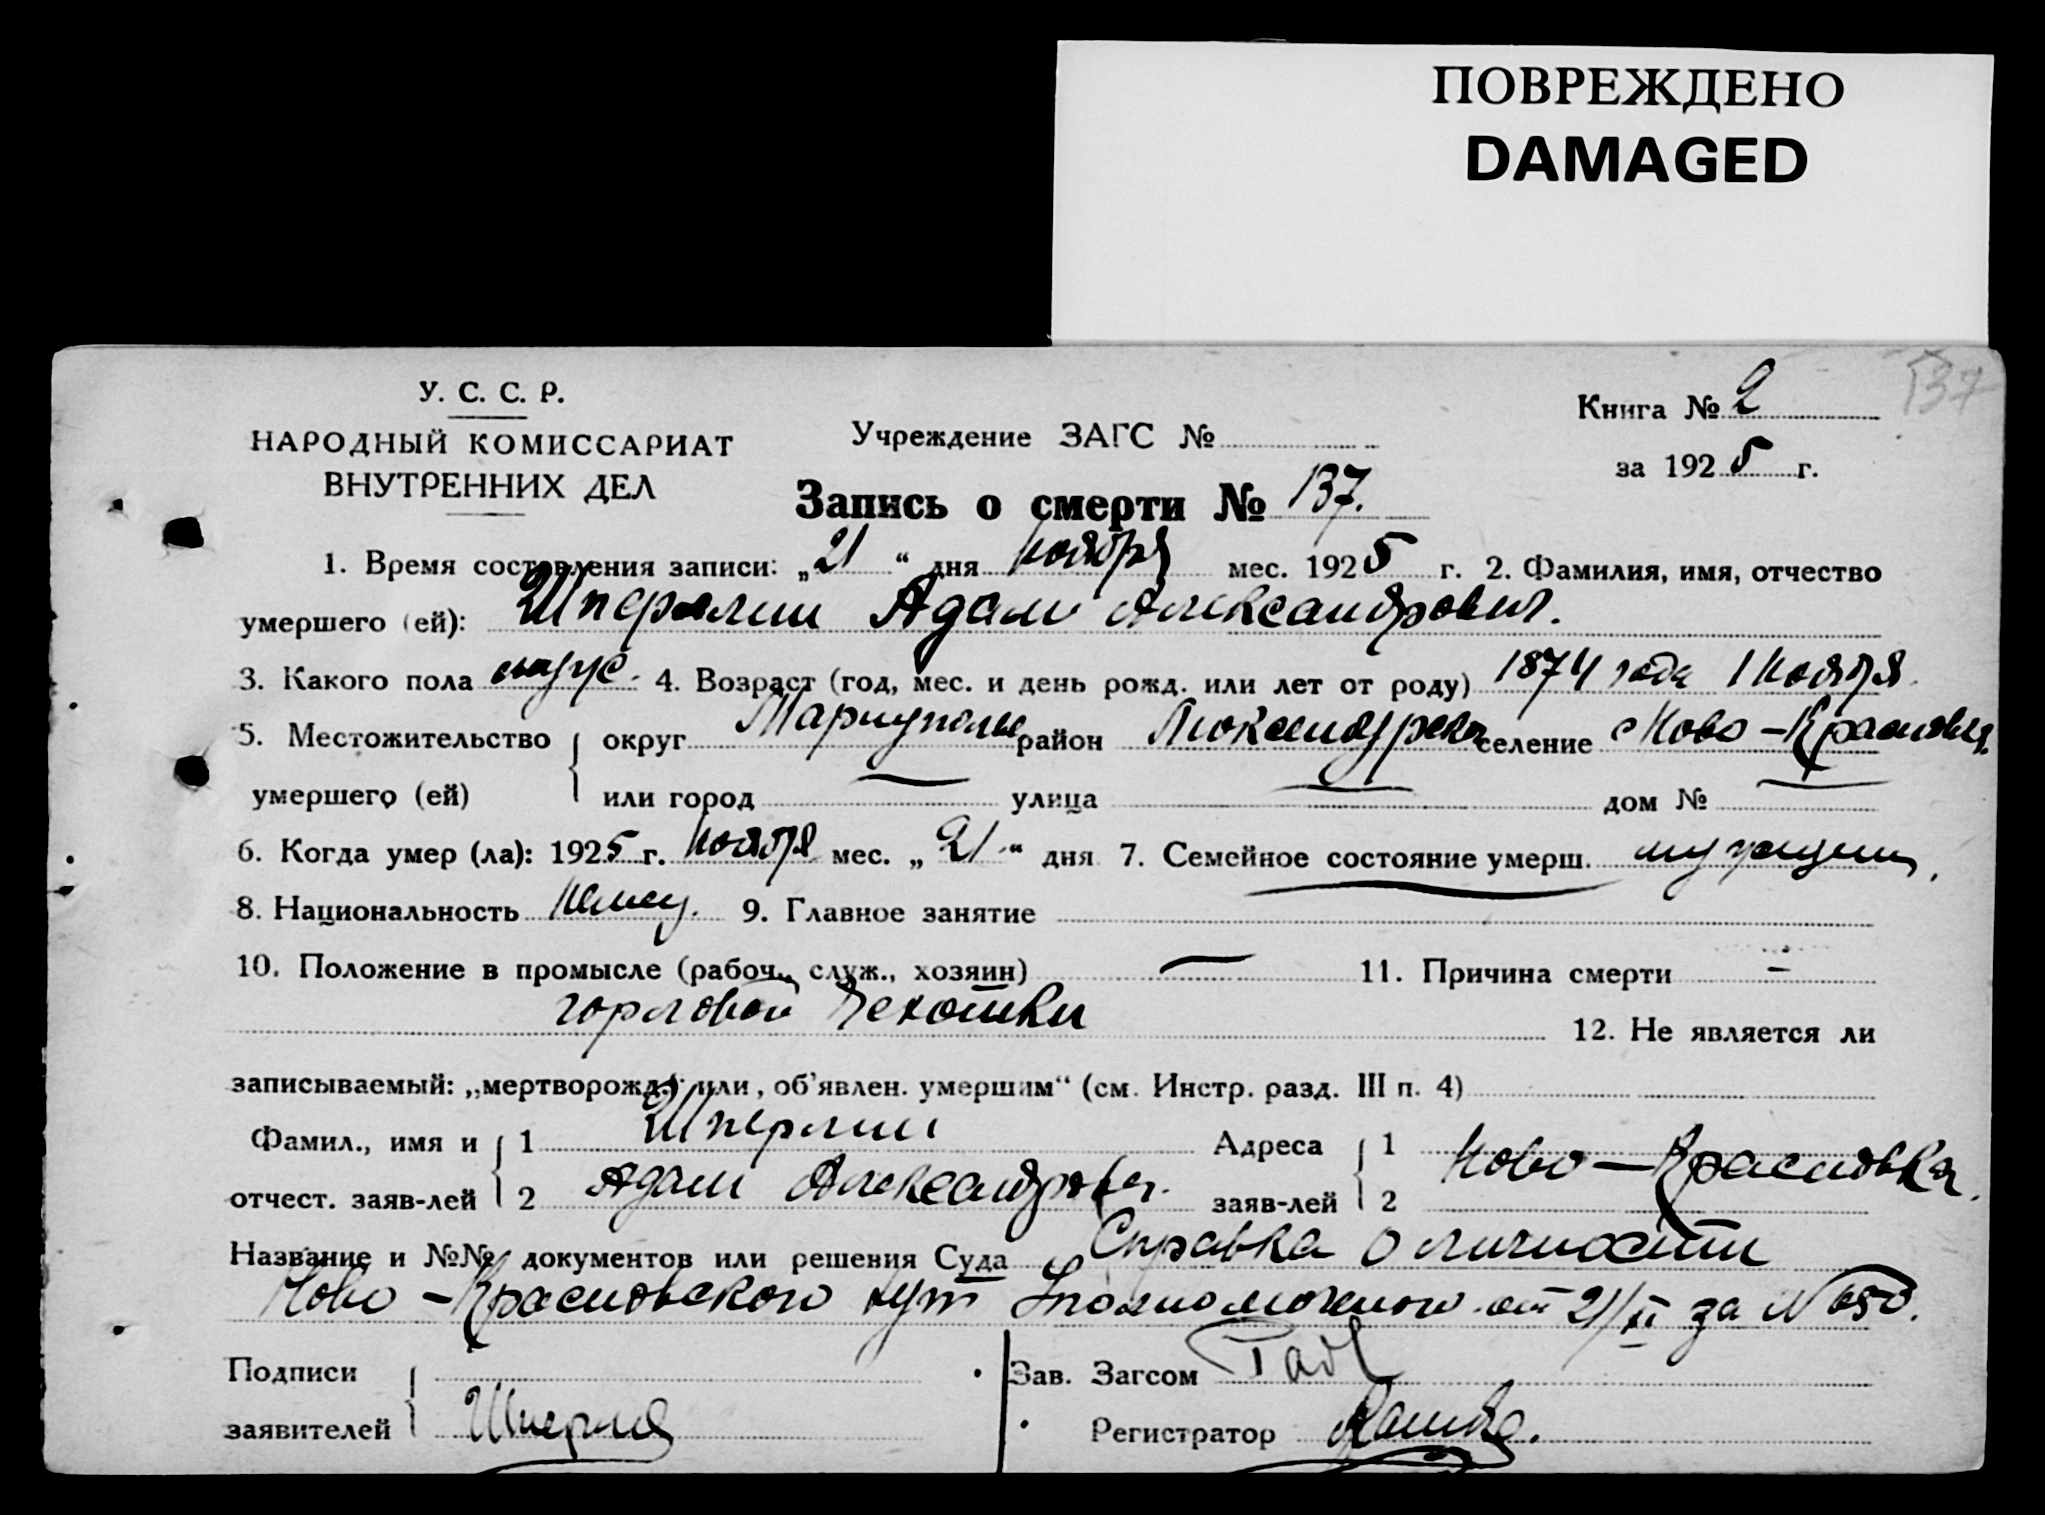 ПОВРЕЖДЕНО
DAMAGED
137
У. С. С. Р.
НАРОДНЫЙ КОМИССАРИАТ
ВНУТРЕННИХ ДЕЛ
Учреждение ЗАГС №
Книга № 2
за 1925 г.
Запись о смерти № 137.
1. Время составления записи: „21“ дня Ноября мес. 1925 г. 2. Фамилия, имя, отчество
умершего (ей): Шперлин Адам Александрович.
3. Какого пола муж. 4. Возраст (год, мес. и день рожд. или лет от роду) 1874 года 1 Ноября
5. Местожительство округ Мариуполь район селение Ново-Красновка
умершего (ей) или город — улица — дом № —
6. Когда умер (ла): 1925 г. Ноября мес. „21“ дня 7. Семейное состояние умерш.
8. Национальность Немец. 9. Главное занятие
10. Положение в промысле (рабоч., служ., хозяин) — 11. Причина смерти –
горловой Чехотки
12. Не является ли
записываемый: „мертворожд.“ или „об'явлен. умершим“ (см. Инстр. разд. III п. 4)
Фамил., имя и 1 Шперлин Адреса 1 Ново-Красновка.
отчест. заяв-лей 2 Адам Александрович. заяв-лей 2
Название и №№ документов или решения Суда Справка о личности
Ново-Красновского от 21/XI за №
Подписи Зав. Загсом
заявителей Регистратор